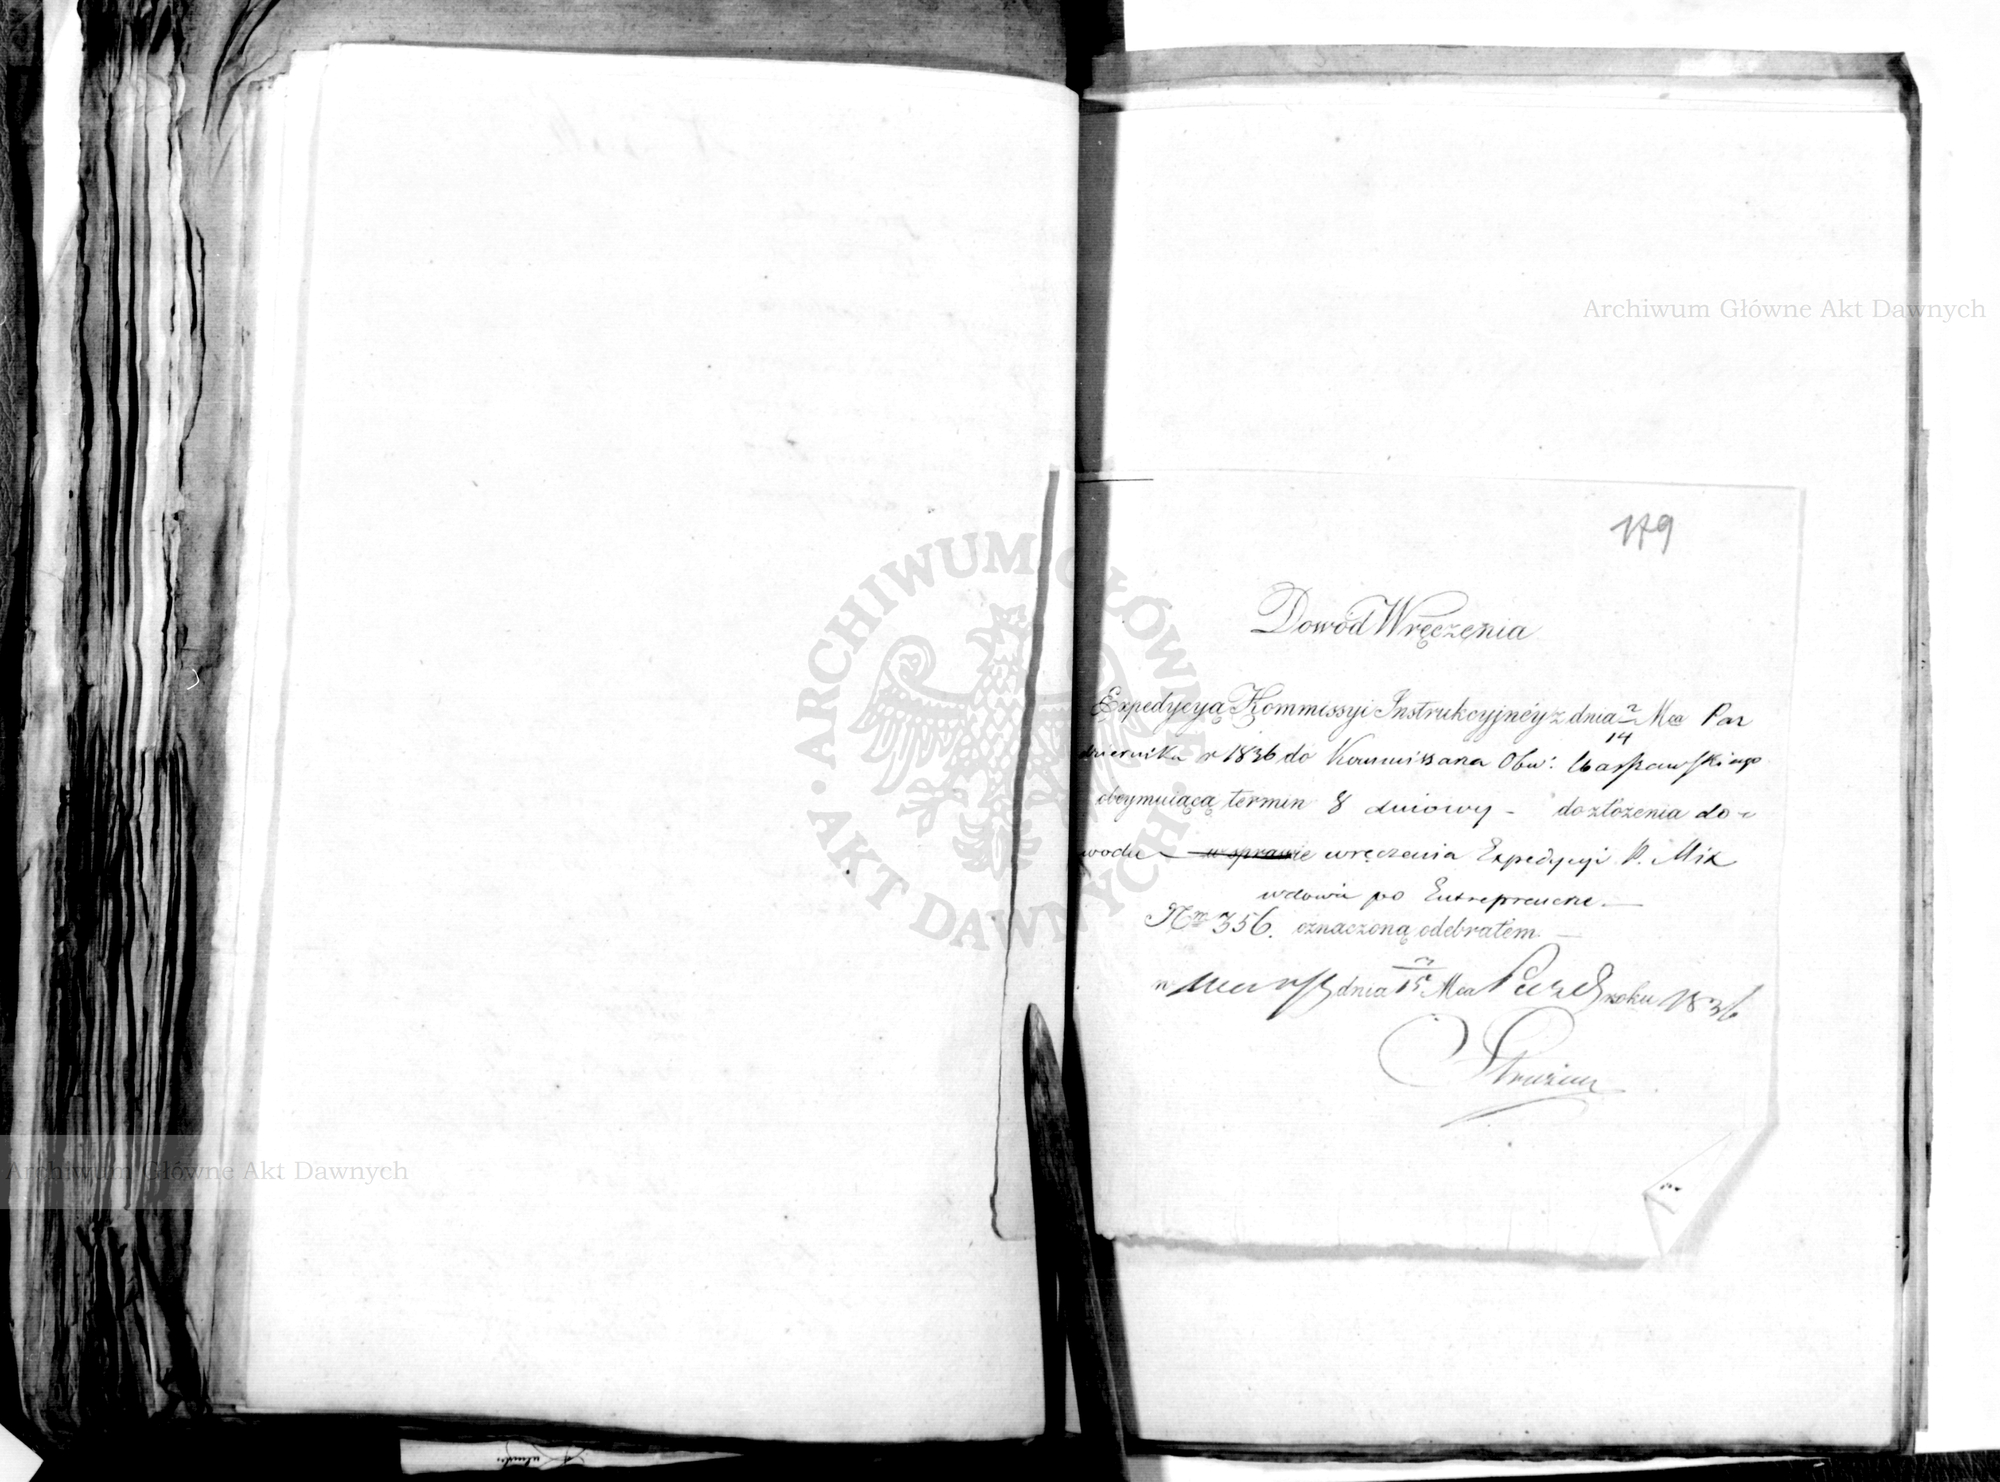 179
Dowód Wręczenia
Expedycyą Kommissyi Instrukcyjnéy z dnia 2/14 Mca Paz
dziernika r 1836 do Kommissarza Obw: Warszawskiego
obeymuiącą termin 8 dniowy - do złożenia do-
wodu w sprawie wręczenia Expedycyi P. Mix
wdowie po Entreprenerze.
Nro 356. oznaczoną odebrałem
w dnia 15 Mca Pazd roku 1836
ARCHIWUM GŁÓWNE AKT DAWNYCH
Archiwum Główne Akt Dawnych
Archiwum Główne Akt Dawnych